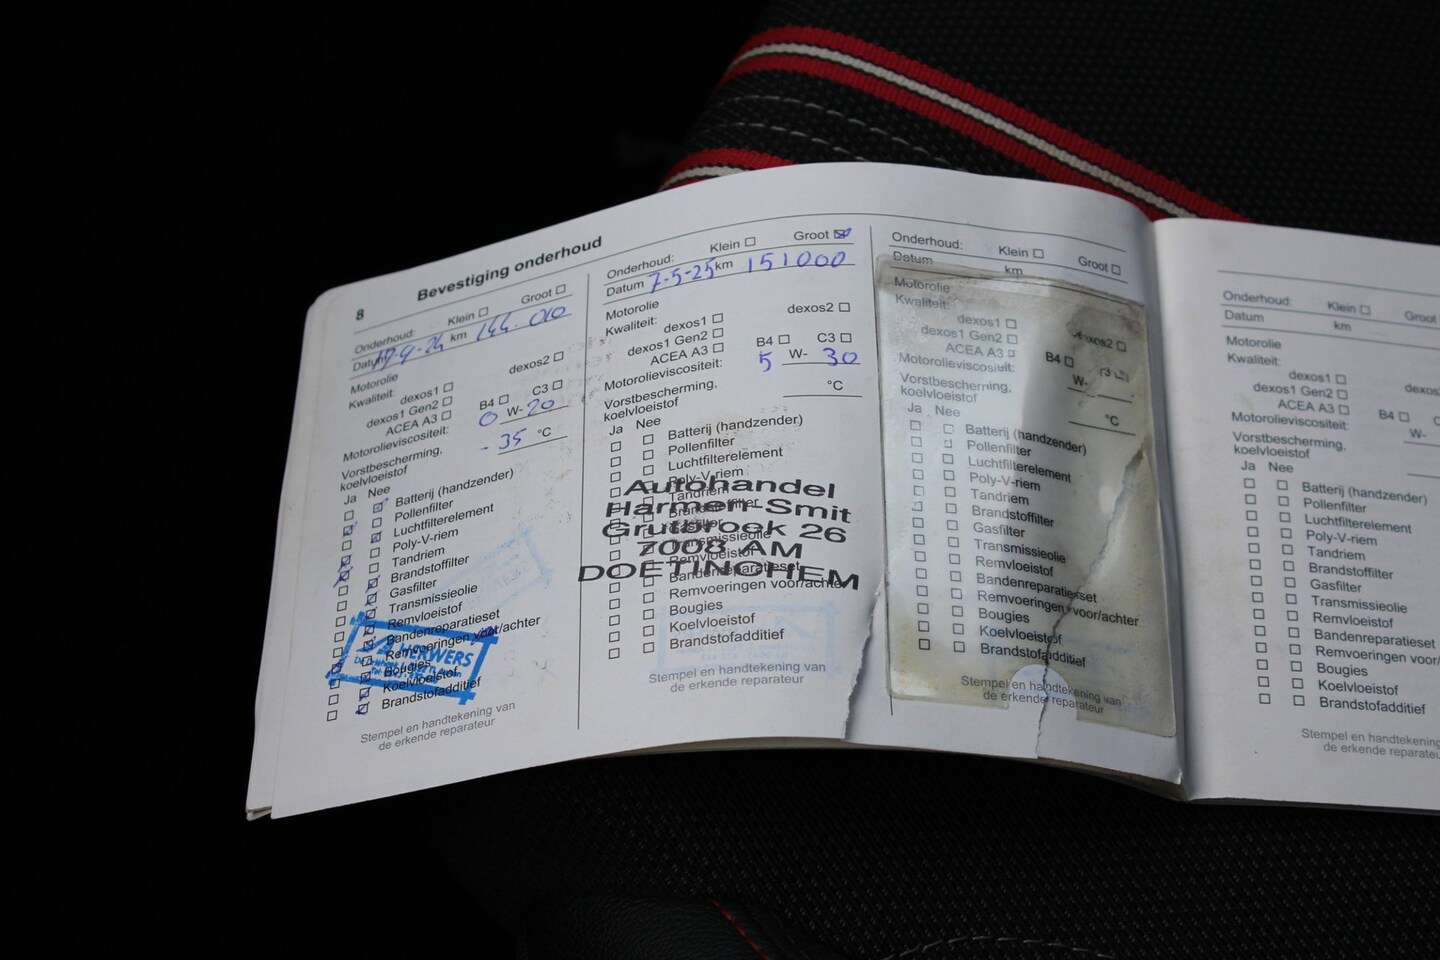 8
Bevestiging onderhoud
Onderhoud: Klein Groot
Datum km 144.010
Motorolie
Kwaliteit: dexos1 dexos2
dexos1 Gen2
ACEA A3 B4 C3
Motorolieviscositeit: 0 W- 20
Vorstbescherming, koelvloeistof -35 °C
Ja Nee
Batterij (handzender)
Pollenfilter
Luchtfilterelement
Poly-V-riem
Tandriem
Brandstoffilter
Gasfilter
Transmissieolie
Remvloeistof
Bandenreparatieset
Remvoeringen voor/achter
HERWERS
Bougies
Koelvloeistof
Brandstofadditief
Stempel en handtekening van
de erkende reparateur
Onderhoud: Klein Groot
Datum 7-5-25 km 151000
Motorolie
Kwaliteit: dexos1 dexos2
dexos1 Gen2
ACEA A3 B4 C3
Motorolieviscositeit: 5 W- 30
Vorstbescherming,
koelvloeistof °C
Ja Nee
Batterij (handzender)
Pollenfilter
Luchtfilterelement
Poly-V-riem
Tandriem
Brandstoffilter
Gasfilter
Transmissieolie
Remvloeistof
Bandenreparatieset
Remvoeringen voor/achter
Bougies
Koelvloeistof
Brandstofadditief
Autohandel
Harmen Smit
Grutbroek 26
7008 AM
DOETINCHEM
Stempel en handtekening van
de erkende reparateur
Onderhoud: Klein Groot
Datum km
Motorolie
Kwaliteit:
dexos1 dexos2
dexos1 Gen2
ACEA A3 B4 C3
Motorolieviscositeit: W-
Vorstbescherming,
koelvloeistof °C
Ja Nee
Batterij (handzender)
Pollenfilter
Luchtfilterelement
Poly-V-riem
Tandriem
Brandstoffilter
Gasfilter
Transmissieolie
Remvloeistof
Bandenreparatieset
Remvoeringen voor/achter
Bougies
Koelvloeistof
Brandstofadditief
Stempel en handtekening van
de erkende reparateur
Onderhoud: Klein Groot
Datum km
Motorolie
Kwaliteit:
dexos1
dexos1 Gen2
ACEA A3 B4
Motorolieviscositeit: W-
Vorstbescherming,
koelvloeistof
Ja Nee
Batterij (handzender)
Pollenfilter
Luchtfilterelement
Poly-V-riem
Tandriem
Brandstoffilter
Gasfilter
Transmissieolie
Remvloeistof
Bandenreparatieset
Remvoeringen voor/
Bougies
Koelvloeistof
Brandstofadditief
Stempel en handtekening
de erkende